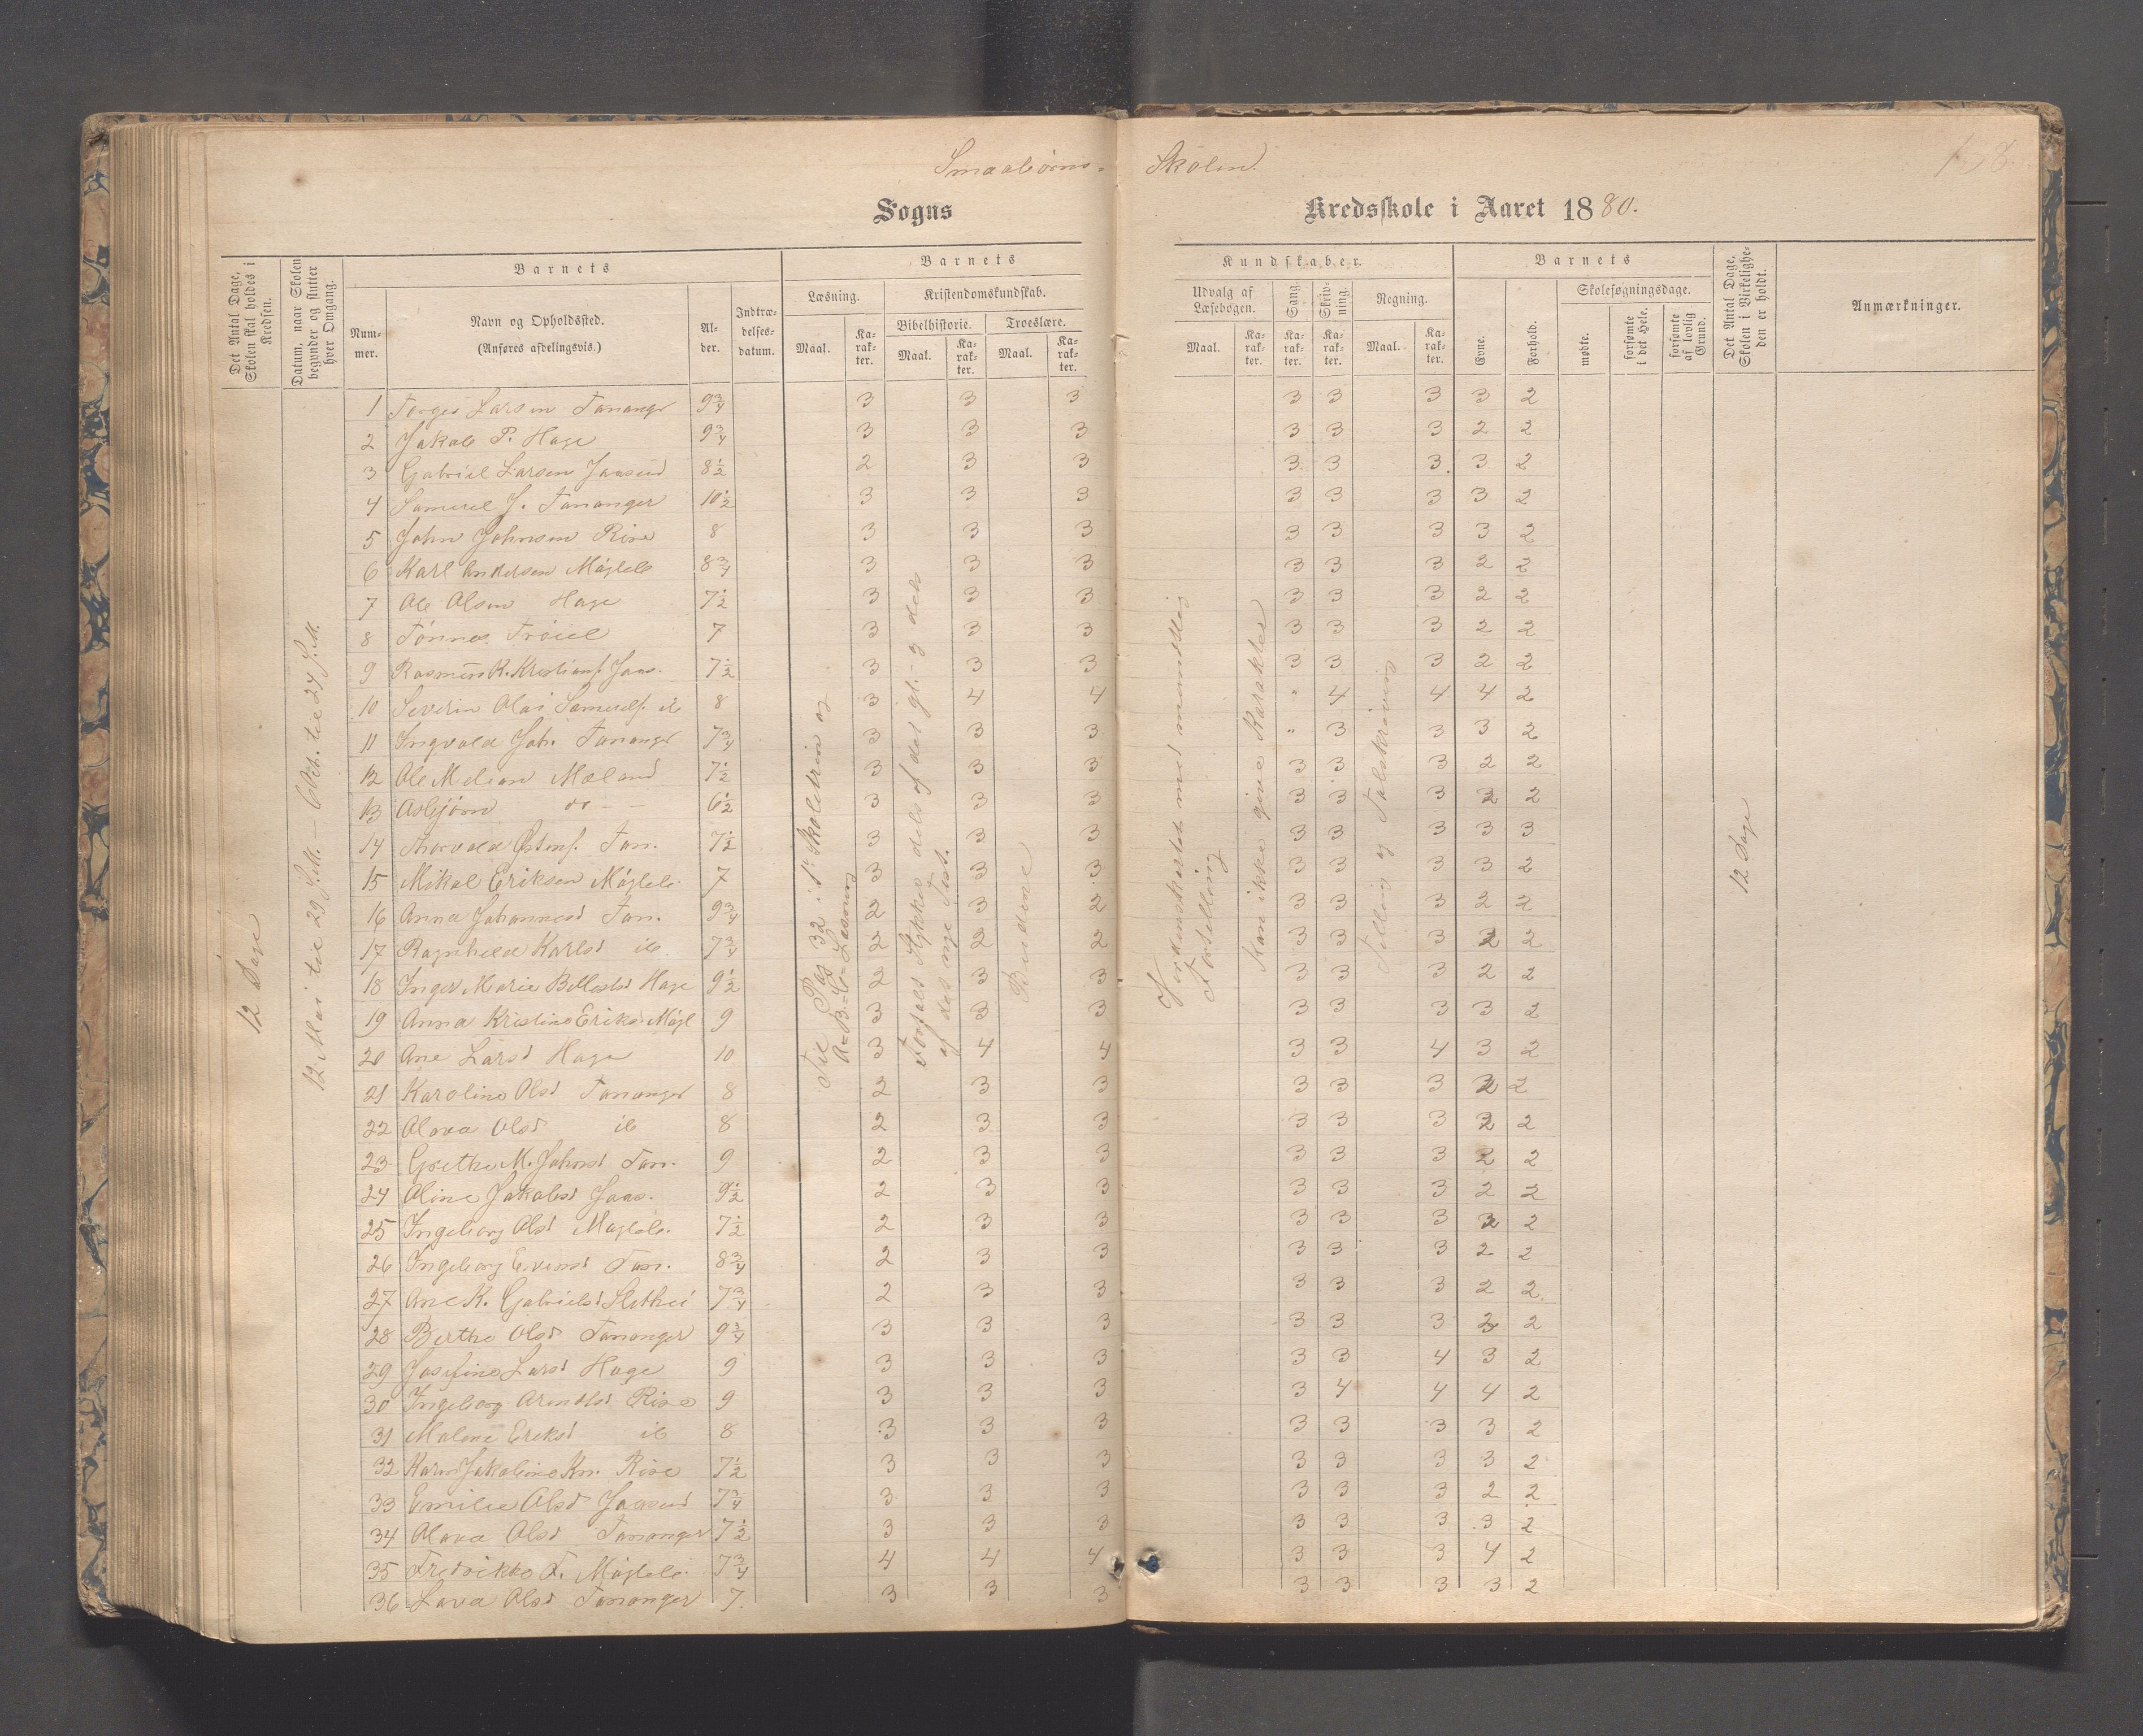 Smaabørns- Skolen. 138
Sogns Kredsskole i Aaret 1880.
Det Antal Dage, Skolen skal holdes i Kredsen.
Datum, naar Skolen begynder og slutter hver Omgang.
Barnets
Num-mer.
Navn og Opholdssted.
(Anføres afdelingsvis.)
Al-der.
Indtræ-delses-datum.
Barnets Kundskaber.
Læsning.
Maal.
Ka-rak-ter.
Kristendomskundskab.
Bibelhistorie.
Maal.
Ka-rak-ter.
Troeslære.
Maal.
Ka-rak-ter.
Udvalg af Læsebogen.
Maal.
Ka-rak-ter.
Sang.
Ka-rak-ter.
Skriv-ning.
Ka-rak-ter.
Regning.
Maal.
Ka-rak-ter.
Barnets
Evne.
Forhold.
Skolesøgningsdage.
mødte.
forsømte i det Hele.
forsømte af lovlig Grund.
Det Antal Dage, Skolen i Virkelighe-den er holdt.
Anmærkninger.
12 Dage
12 Mai til 29 J.M. – Oct. til 27 J.M.
Til Pag 32 i 1te Skoletrin og
A=B=C=Læsning
Fortalt Stykker dels af det gl. - g dels
af det nye Test.
Budene
Verdenskartet med mundtlig
Fortelling
Kan ikke give Karakter
Telling og Talskrivning
12 Dage
1 Torger Larsen Tananger 9 3/4 3 3 3 3 3 3 3 2
2 Jakob P. Hage 9 3/4 3 3 3 3 3 3 2 2
3 Gabriel Larsen Jaasund 8 1/2 2 3 3 3 3 3 3 2
4 Samuel J. Tananger 10 1/2 3 3 3 3 3 3 3 2
5 John Johnsen Risa 8 3 3 3 3 3 3 3 2
6 Karl Andersen Møgleb 8 3/4 3 3 3 3 3 3 2 2
7 Ole Olsen Hage 7 1/2 3 3 3 3 3 3 2 2
8 Tønnes 7 3 3 3 3 3 3 2 2
9 Rasmus K. Kristians. Jaas. 7 1/2 3 3 3 3 3 3 2 2
10 Severin Olai Samuels. ib 8 3 4 4 " 4 4 4 2
11 Ingvald Joh. Tananger 7 3/4 3 3 3 " 3 3 3 2
12 Ole Melian Mæland 7 1/2 3 3 3 3 3 3 2 2
13 Asbjørn do - 6 1/2 3 3 3 3 3 3 2 2
14 Thorvald Østens. Tan. 7 1/2 3 3 3 3 3 3 3 3
15 Mikal Eriksen Møgleb. 7 3 3 3 3 3 3 3 2
16 Anna Johannesd Tan. 9 3/4 2 3 2 3 3 3 2 2
17 Ragnhild Karlsd ib. 7 3/4 2 2 2 3 3 3 2 2
18 Inger Marie Hage 9 1/2 2 3 3 3 3 3 2 2
19 Anna Kristine Eriks. Møgl 9 3 3 3 3 3 3 3 2
20 Ane Larsd Hage 10 3 4 4 3 3 4 3 2
21 Karoline Olsd Tananger 8 2 3 3 3 3 3 2 2
22 Olava Olsd ib 8 2 3 3 3 3 3 2 2
23 Grethe M. Johnsd Tan. 9 2 3 3 3 3 3 2 2
24 Oline Jakobsd Jaas. 9 1/2 2 3 3 3 3 3 2 2
25 Ingeborg Olsd Møgleb. 7 1/2 2 3 3 3 3 3 2 2
26 Ingeborg Evensd Tan. 8 3/4 2 3 3 3 3 3 2 2
27 Ane K. Gabrielsd Slethei 7 3/4 2 3 3 3 3 3 2 2
28 Berthe Olsd Tananger 9 3/4 3 3 3 3 3 3 2 2
29 Josefine Larsd Hage 9 3 3 3 3 3 4 3 2
30 Ingeborg Arntsd Risa 9 3 3 3 3 4 4 4 2
31 Malene Eriksd ib 8 3 3 3 3 3 3 3 2
32 Karen Jakobine Kn. Risa 7 1/2 3 3 3 3 3 3 3 2
33 Emilie Olsd Jaasund 7 3/4 3 3 3 3 3 3 2 2
34 Olava Olsd Tananger 7 1/2 3 3 3 3 3 3 3 2
35 Fredrikke T. Møgleb. 7 3/4 4 4 4 3 3 3 4 2
36 Lava Olsd Tananger 7. 3 3 3 3 3 3 3 2